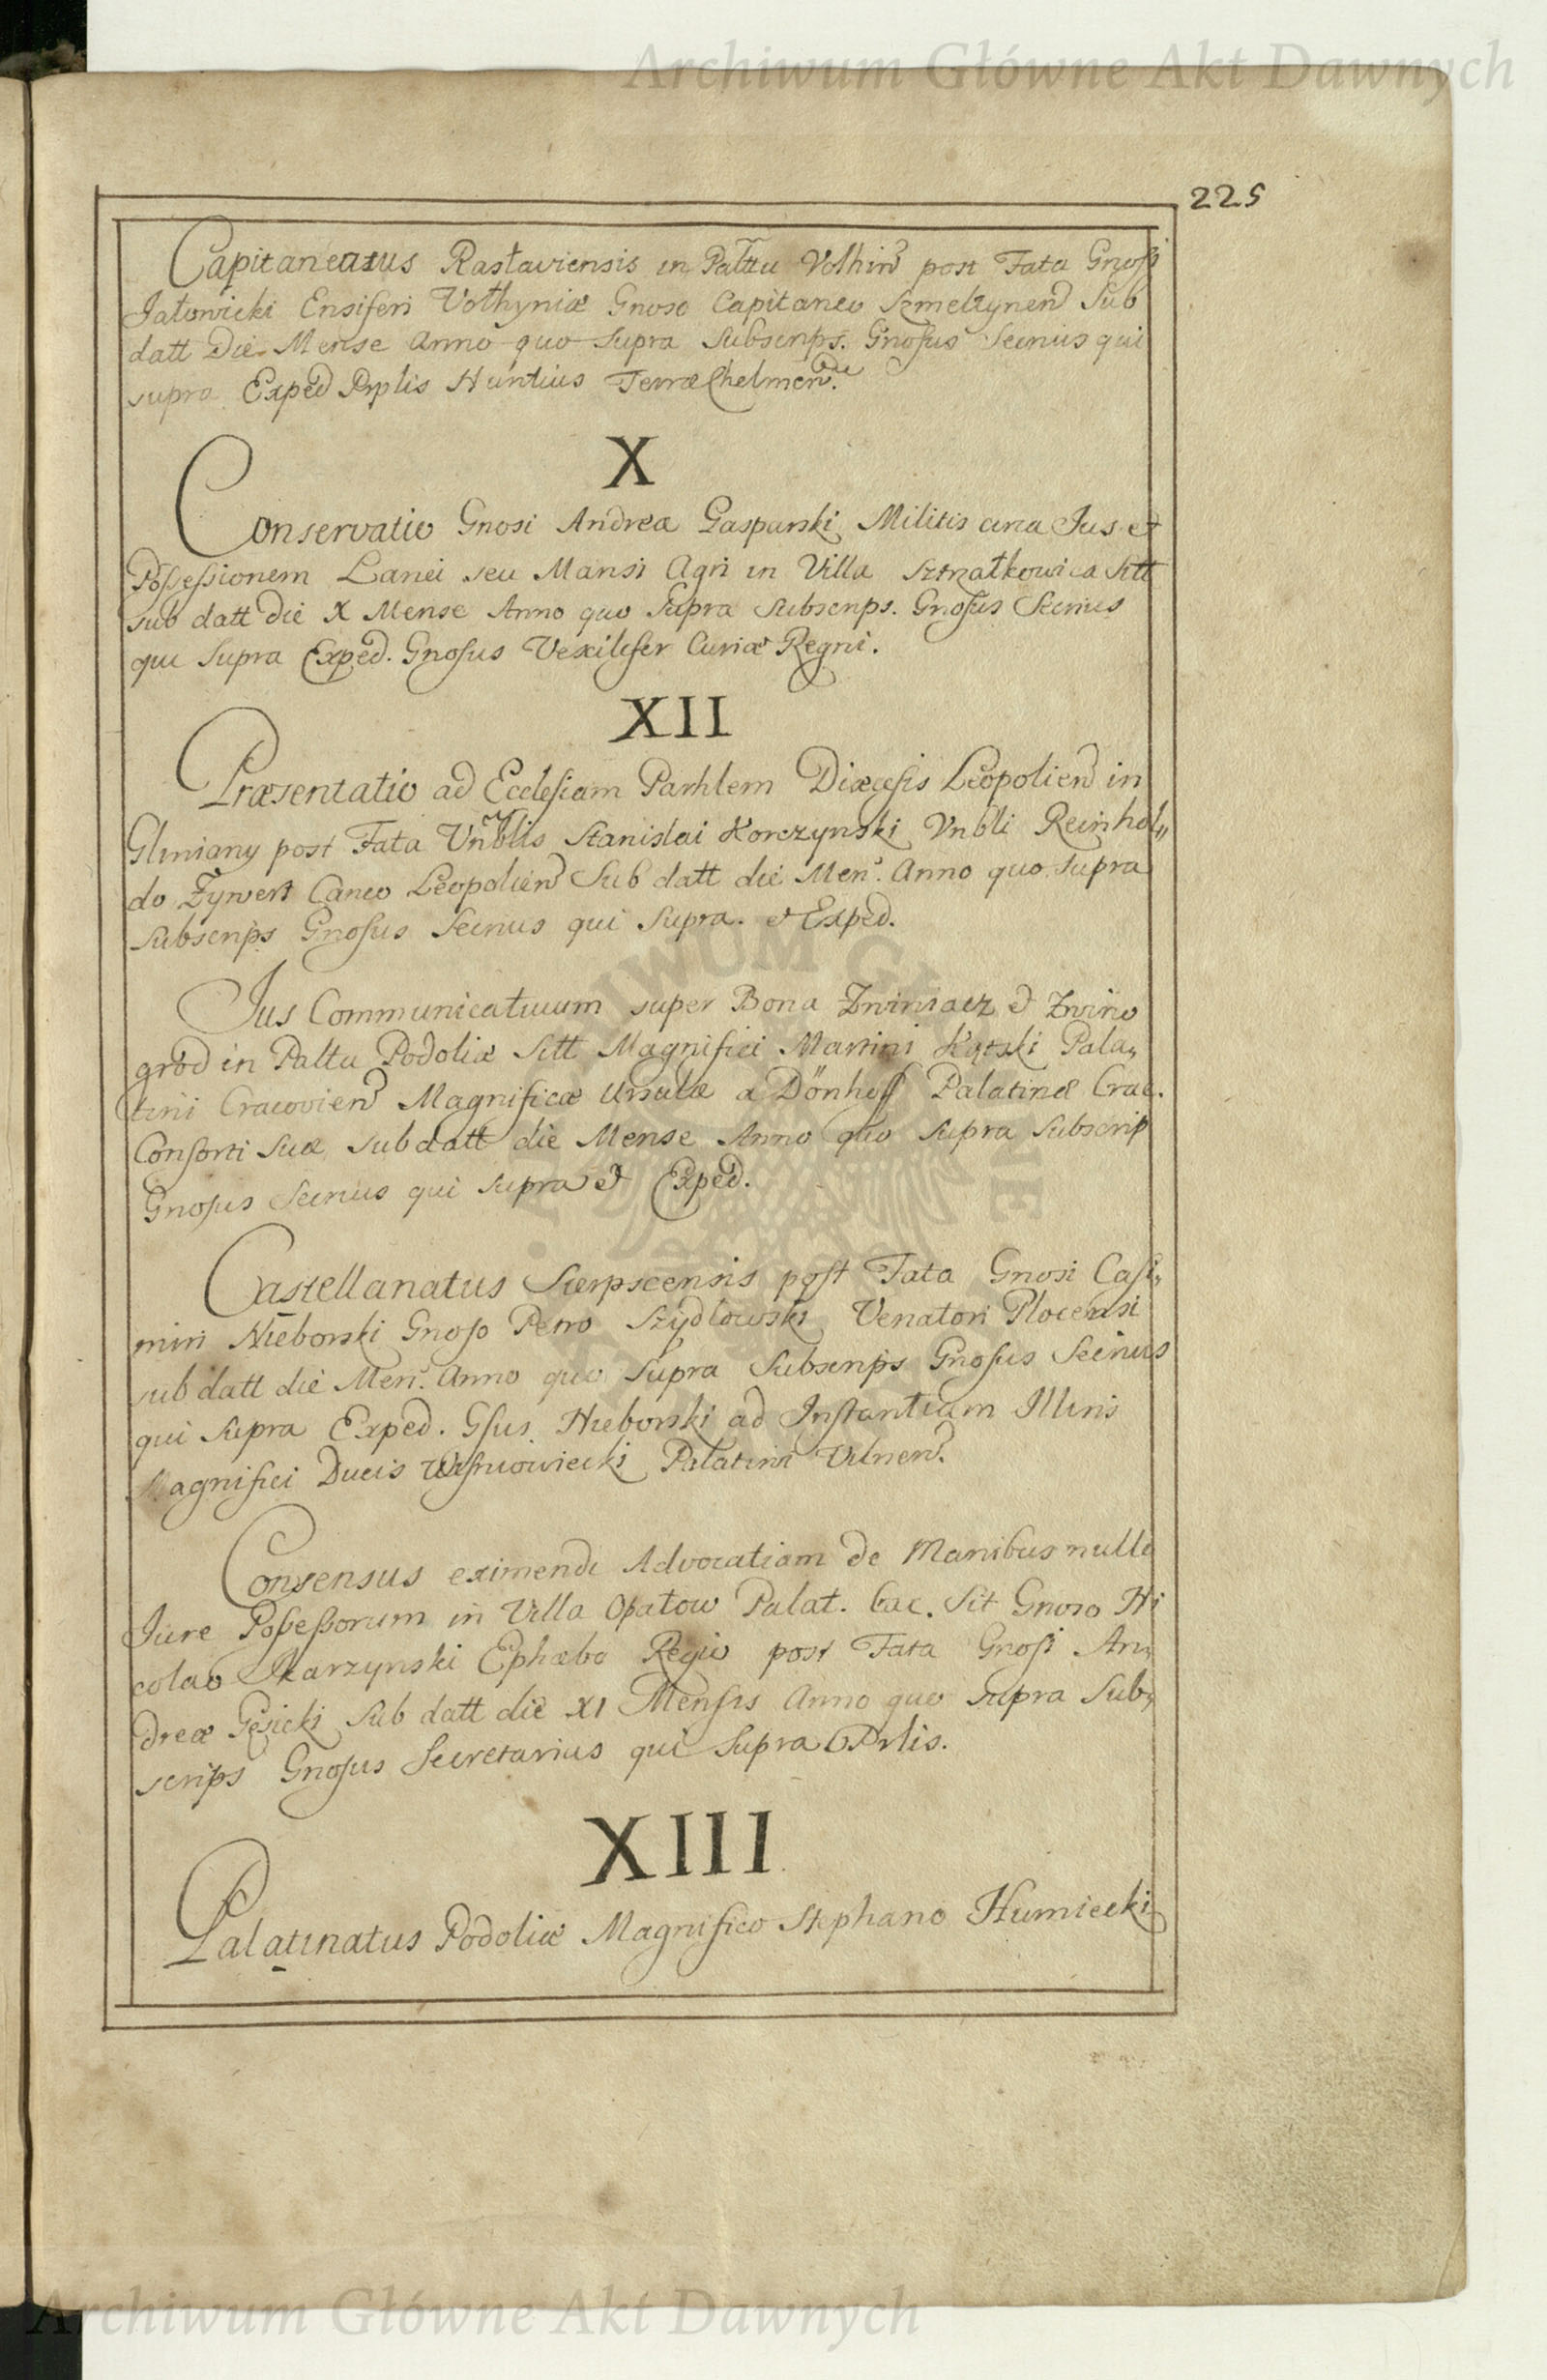 Archiwum Główne Akt Dawnych
225
Capitaneatus Rastaviensis in Palttu Volhin̄ post Fata Gnosi
Jałowicki Ensiferi Volhyniæ Gnoso Capitaneo Szmelzynen̄ Sub
datt Die Mense Anno quo Supra Subscrips. Gnosus Secrius qui
supra Exped Prplis Nuntius Terræ Chelmen.
X
Conservatio Gnosi Andreæ Gasparski Militis circa Jus et
Possessionem Lanei seu Mansi Agri in Villa Sitt
sub datt die X Mense Anno quo Supra Subscrips. Gnosus Secrius
qui Supra Exped. Gnosus Vexilifer Curiæ Regni.
XII
Præsentatio ad Ecclesiam Parhlem Diæcesis Leopolien̄ in
Gliniany post Fata Vnblis Stanislai Korczynski Vnbli Reinhol„
do Zywert Canco Leopolien̄ Sub datt die Men. Anno quo Supra
Subscrips Gnosus Secrius qui Supra. et Exped.
Jus Communicativum super Bona Zwiniacz et Zwino
grod in Palttu Podoliæ Sitt Magnifici Martini Kątski Pala„
tini Cracovien̄ Magnificæ Ursulæ a Dönhoff Palatinæ Crac.
Consorti Suæ sub datt die Mense Anno quo Supra Subscrip
Gnosus Secrius qui Supra et Exped.
Castellanatus Sierpscensis post Fata Gnosi Casi„
miri Nieborski Gnoso Petro Szydlowski Venatori Plocensi
sub datt die Men. Anno quo Supra Subscrips Gnosus Secrius
qui Supra Exped. Gsus Nieborski ad Instantiam Illmi
Magnifici Ducis Wisniowiecki Palatini Vilnen.
Consensus eximendi Advocatiam de Manibus nullo
Jure Possessorum in Villa Opatow Palat. Sit Gnoso Ni
colao Skarzynski Ephæbo Regio post Fata Gnosi An„
dreæ Gęsicki Sub datt die XI Mensis Anno quo Supra Sub„
scrips Gnosus Secretarius qui Supra
XIII
Palatinatus Podoliæ Magnifico Stephano Humiecki
Archiwum Główne Akt Dawnych